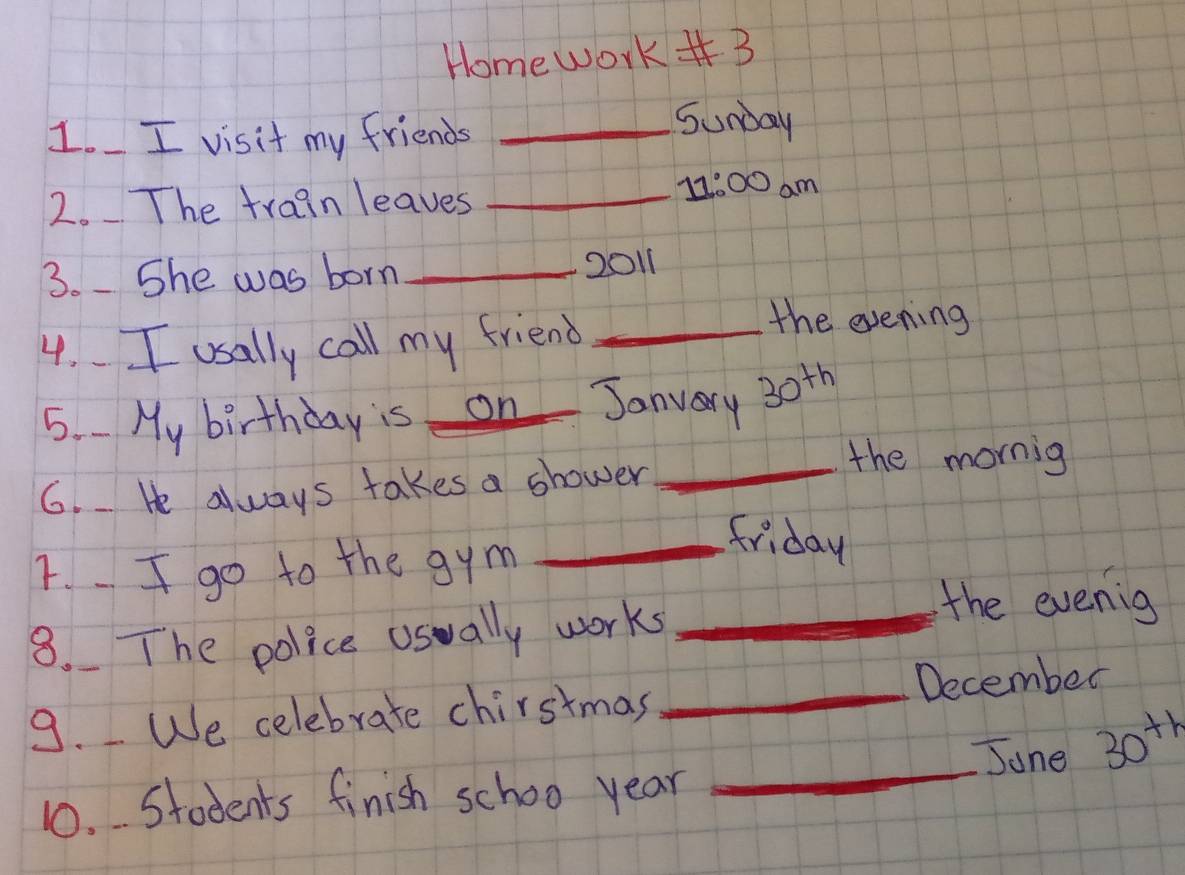 HomeWork # 3
1._ I visit my friends ______ Sunday
2._ The train leaves ______ 11:00 am
3._ She was born ______ 2011
4._ I usally call my friend ______ the evening
5._ My birthday is on January 30th
6._ He always takes a shower ______ the mornig
7._ I go to the gym ______ friday
8._ The police usually works ______ the evenig
9._ We celebrate chirstmas ______ December
10._ Students finish schoo year ______ June 30th